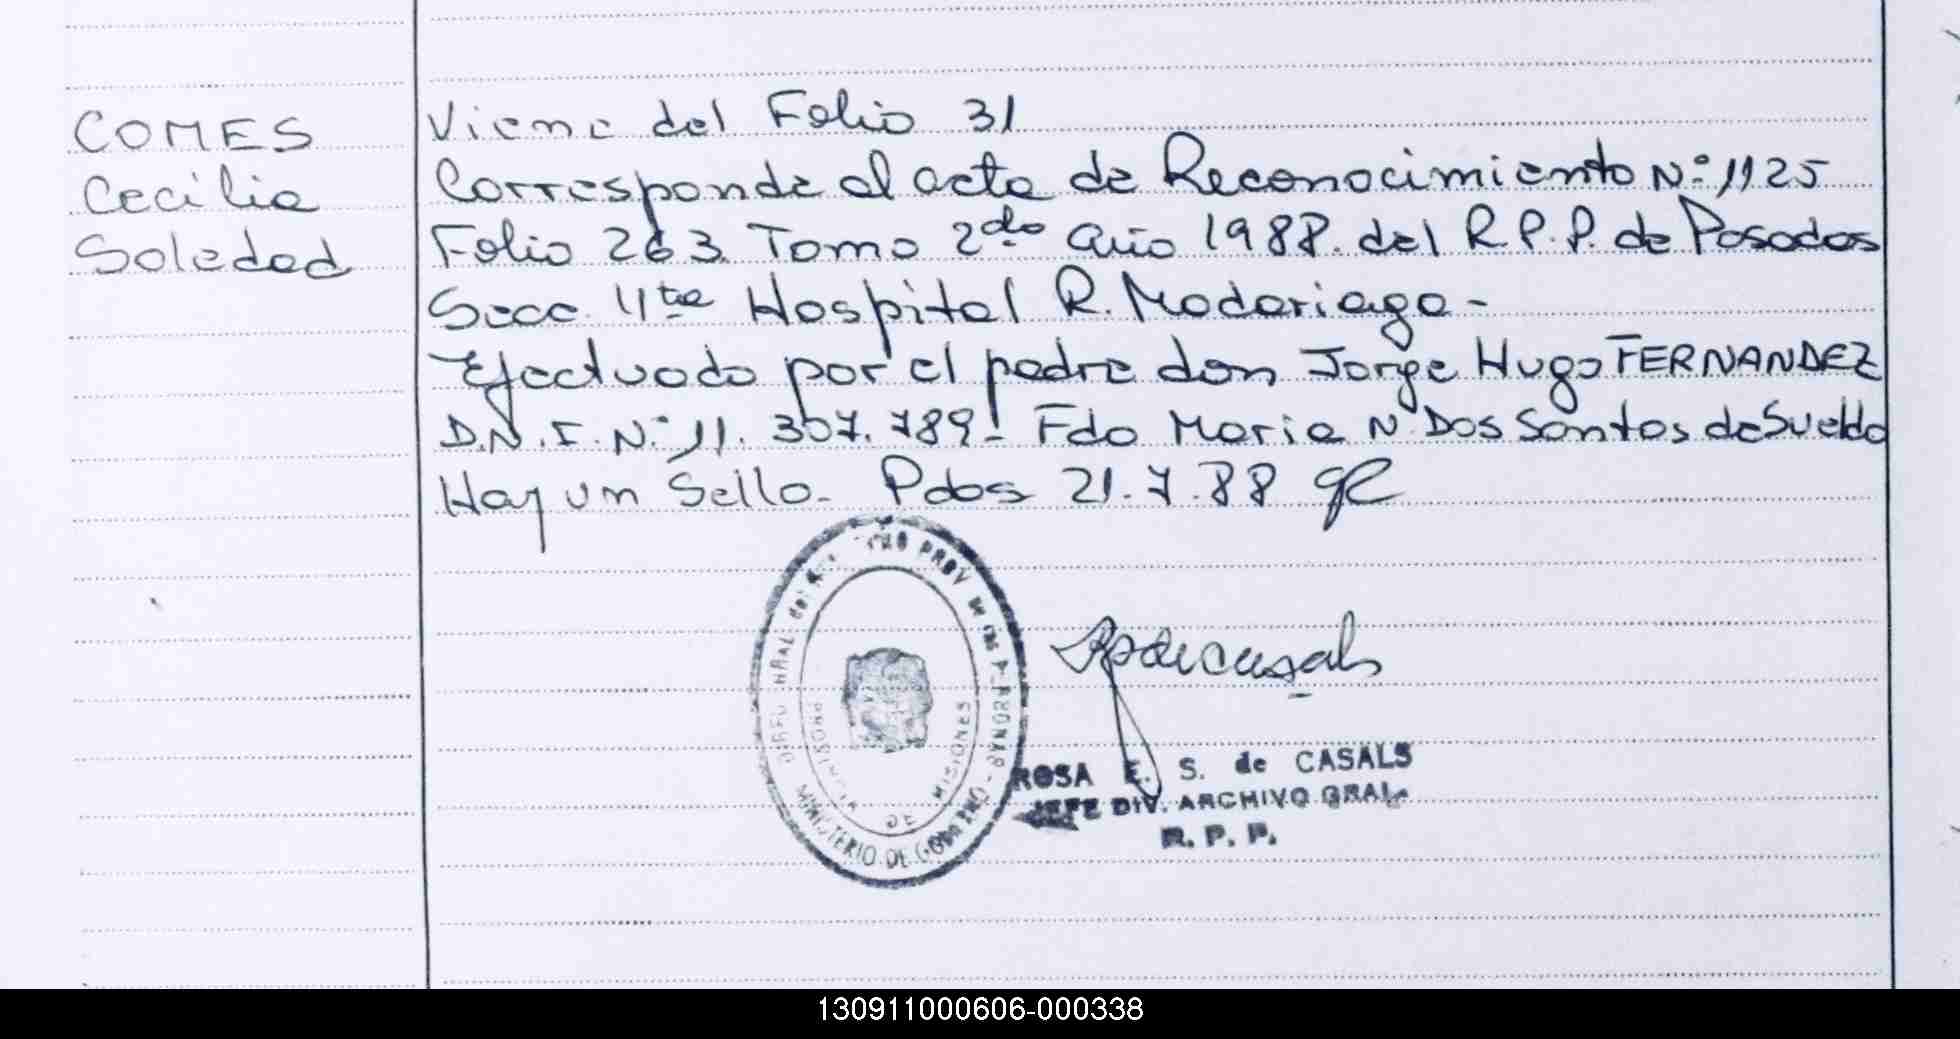 COMES
Cecilia
Soledad
Viene del Folio 31
Corresponde al acta de Reconocimiento Nº 1125
Folio 263 Tomo 2do año 1988. del R.P.P. de Posadas
Secc. 4ta Hospital R. Madariaga -
Efectuado por el padre don Jorge Hugo FERNANDEZ
D.N.I. Nº 11.307.789- Fdo Maria N Dos Santos de Sueldo
Hay un Sello - Pdas 21.7.88
PROV DE LAS PERSONAS
MINISTERIO DE GOBIERNO
PROVINCIA DE MISIONES
ROSA E. S. de CASALS
JEFE DIV. ARCHIVO GRAL.
R. P. P.
130911000606-000338